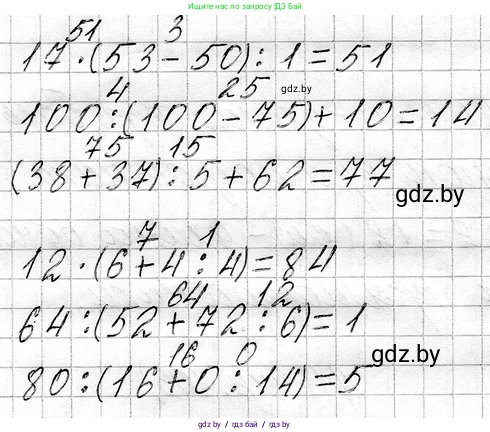 решено по запросу ГДЗ Бай
51 3
17 · (53 - 50) : 1 = 51
gdz.by
4 25
100 : (100 - 75) + 10 = 14
75 15
(38 + 37) : 5 + 62 = 77
gdz.by
7 1
12 · (6 + 4 : 4) = 84
64 12
64 : (52 + 72 : 6) = 1
gdz.by
16 0
80 : (16 + 0 : 14) = 5
gdz.by / гдз бай / gdz.by